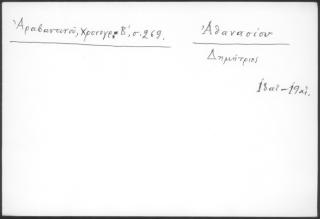 Ἀραβαντινοῦ, Χρονογρ. Β΄, σ. 269.
Ἀθανασίου
Δημήτριος
18αι - 19αι.